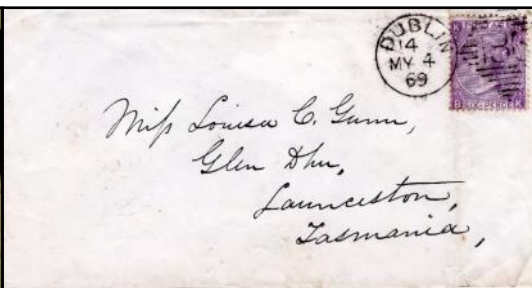 DUBLIN
14
MY 4
69
SIX PENCE
Miſs Louisa C. Gunn,
Glen Dhu,
Launceston,
Tasmania,